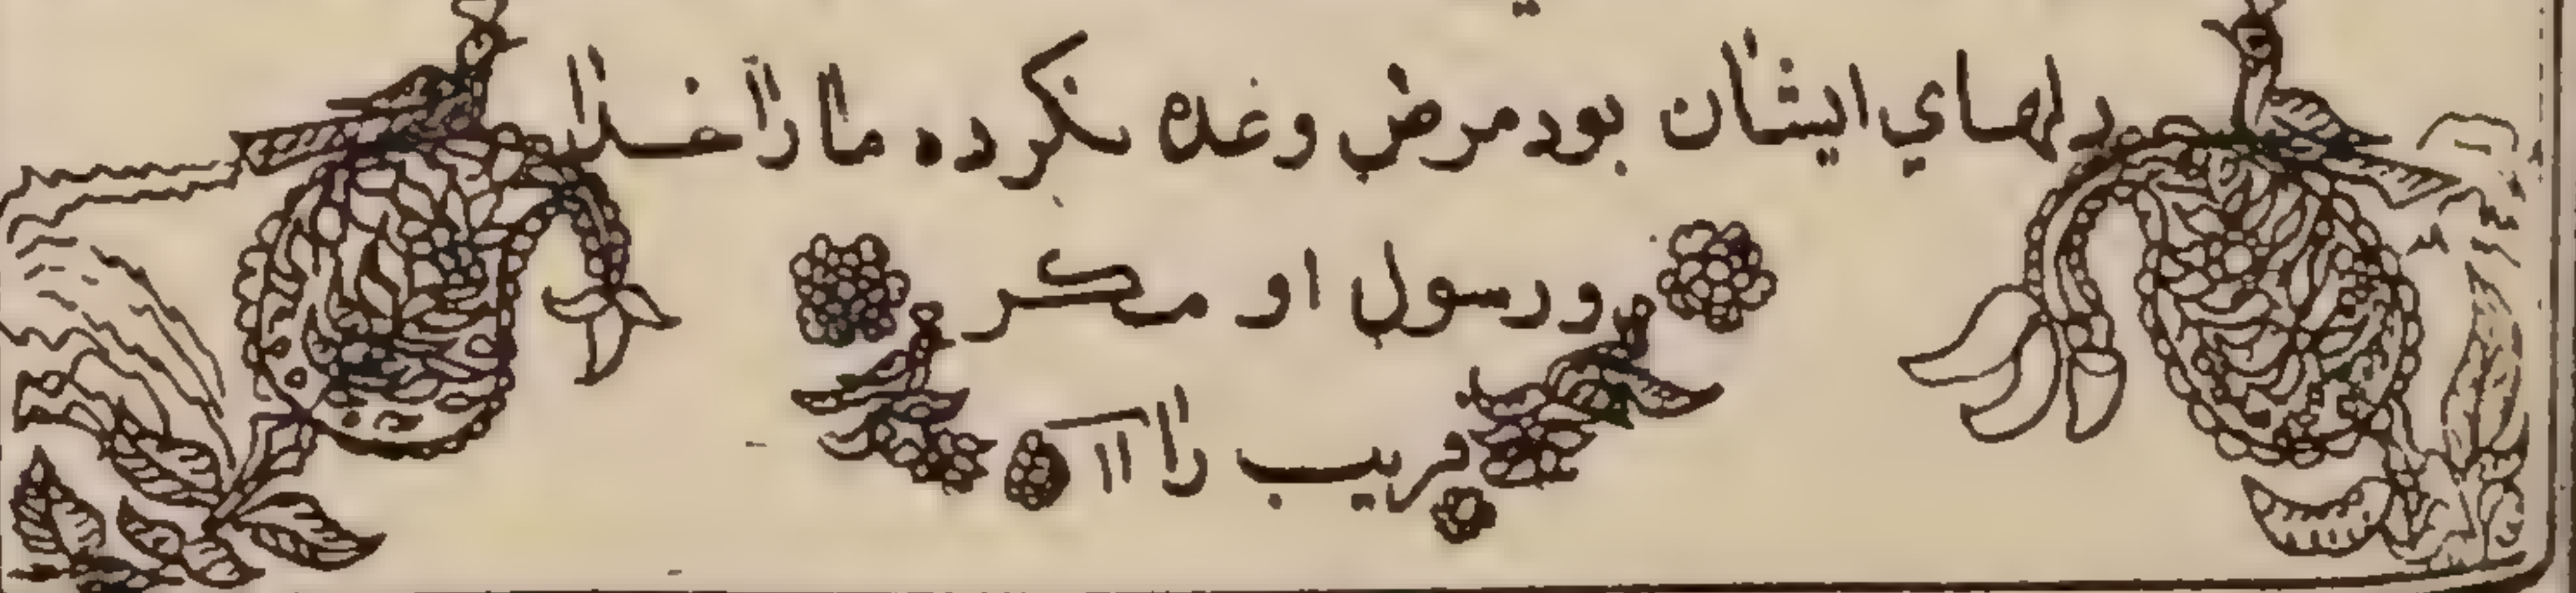 دلهاي ايشان بود مرض وعده نكرده ما را خدا
ورسول او مكر
فريب را ١١